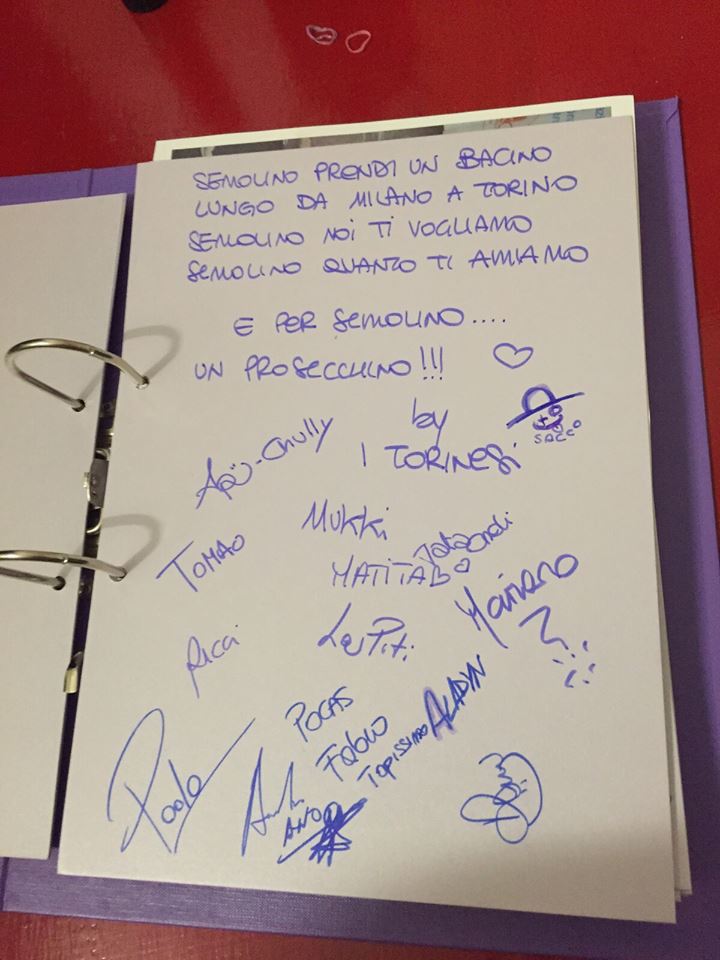 SEMOLINO PRENDI UN BACINO
LUNGO DA MILANO A TORINO
SEMOLINO NOI TI VOGLIAMO
SEMOLINO QUANTO TI AMIAMO
E PER SEMOLINO....
UN PROSECCHINO!!!
by
I TORINESI
SACCO
TOMAO
MUKKi
MATITAB
Mariano
Ricci
LaPiti
POCAS
Fabio
TOPISSIMO ALADYN
Paolo